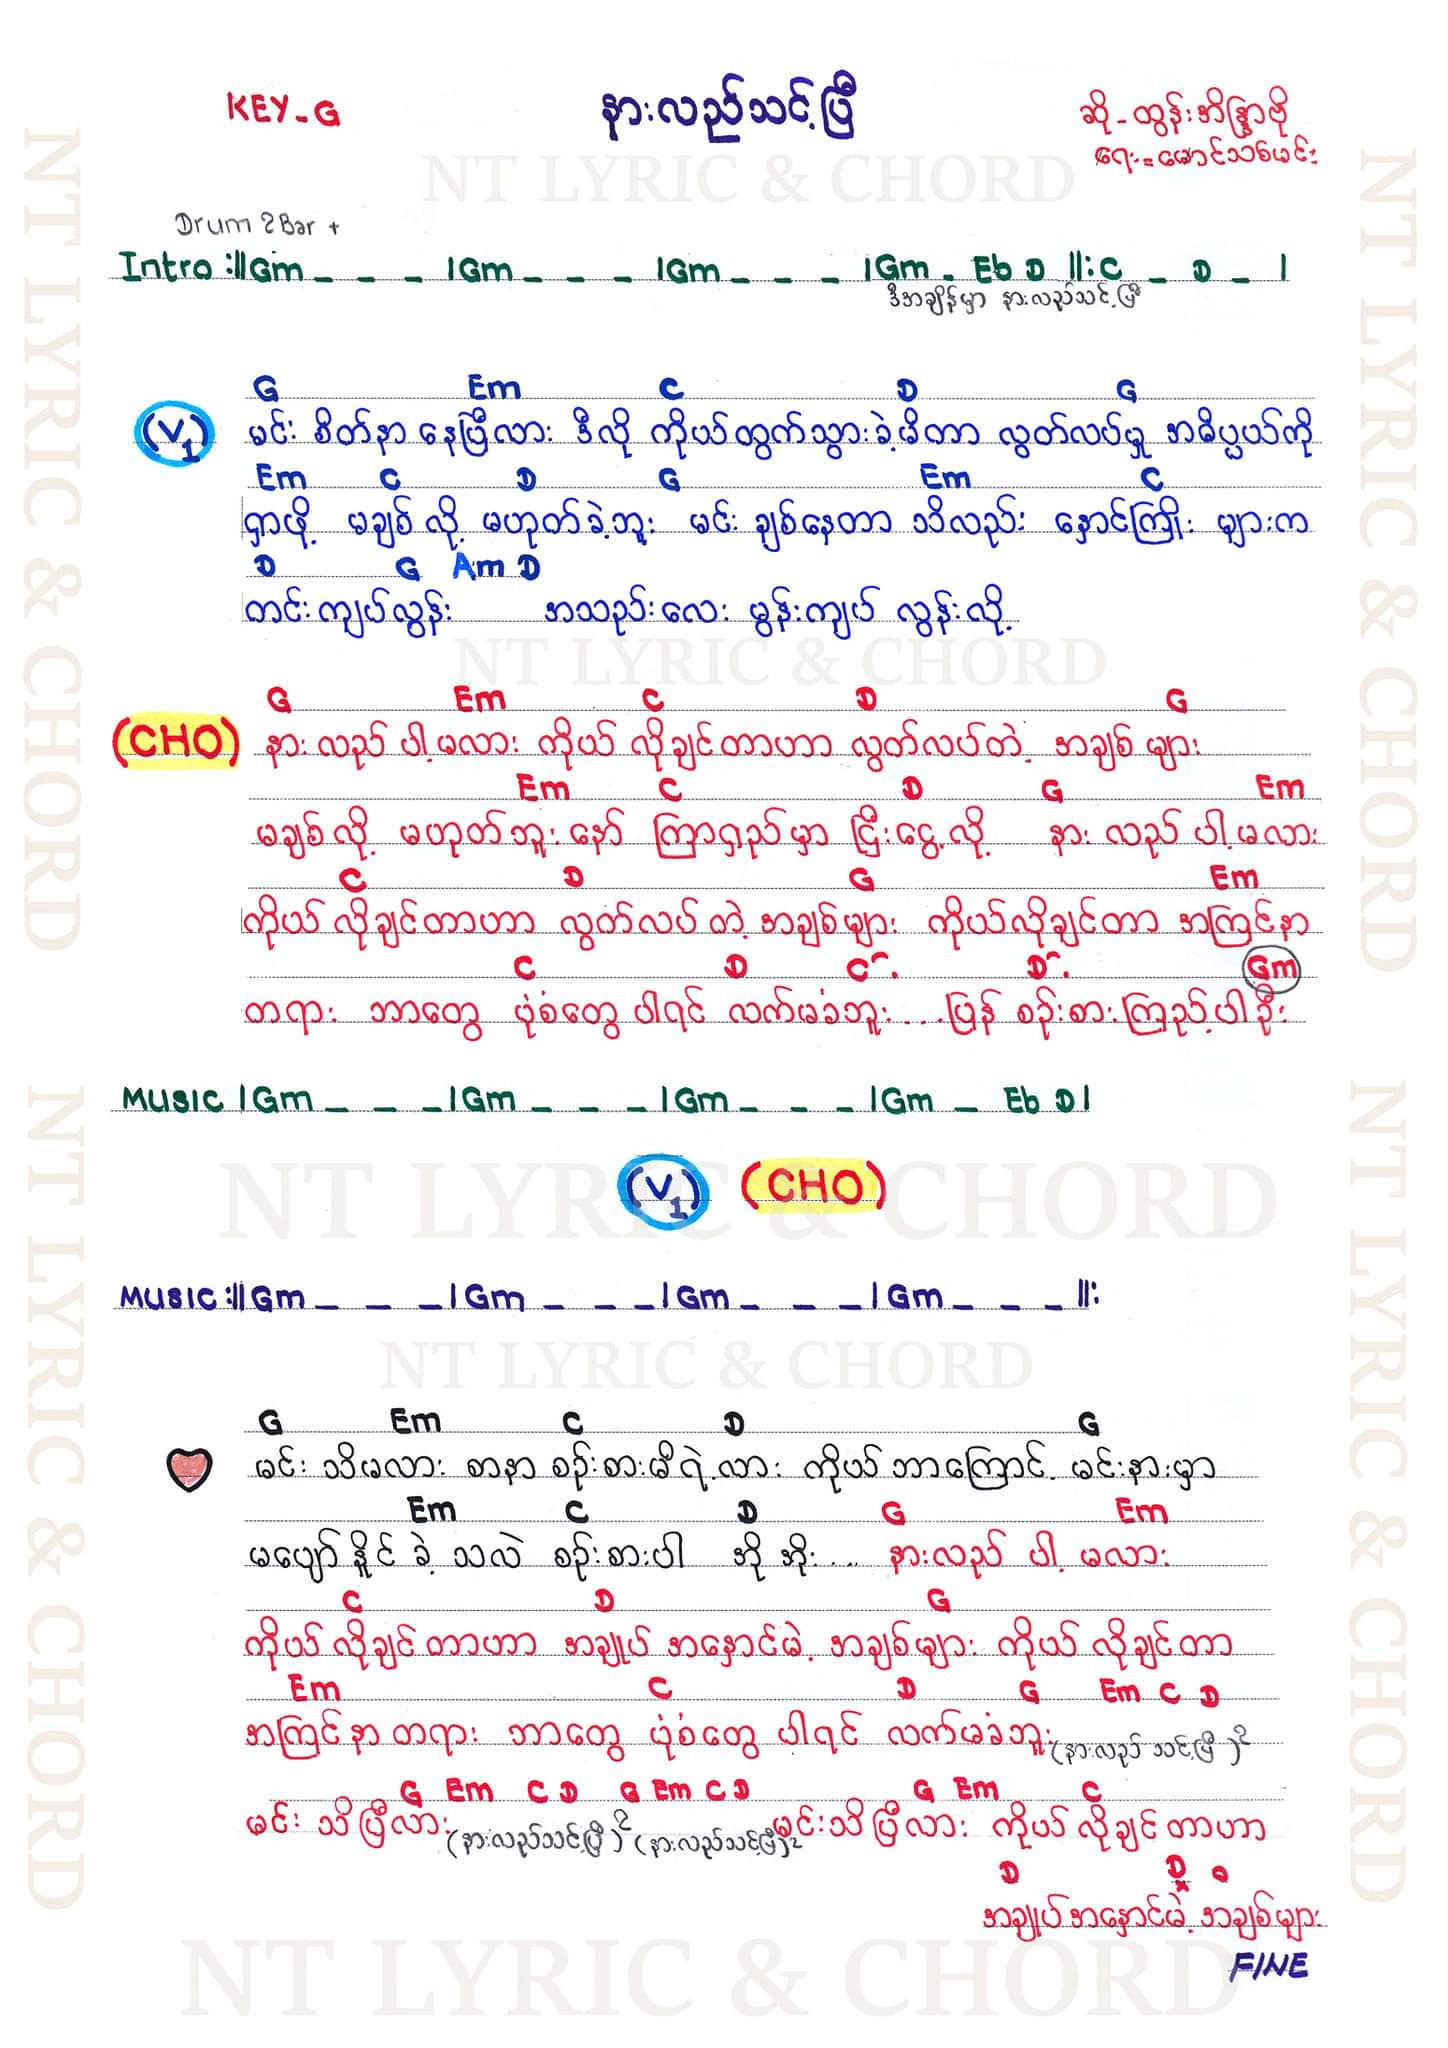 KEY-G
နားလည်သင့်ပြီ
ဆို - ထွန်းအိန္ဒြာဗို
ရေး = မောင်သစ်မင်း
NT LYRIC & CHORD
Drum 2Bar +
Intro :||Gm _ _ _ |Gm _ _ _ |Gm _ _ _ |Gm - Eb D ||: C _ D _ |
ဒီအချိန်မှာ နားလည်သင့်ပြီ
G Em C D G
(V1) မင်း စိတ်နာ နေပြီလား ဒီလို ကိုယ်ထွက်သွားခဲ့မိတာ လွတ်လပ်မှု အဓိပ္ပယ်ကို
Em C D G Em C
ရှာဖို့ မချစ် လို့ မဟုတ်ခဲ့ဘူး မင်း ချစ်နေတာ သိလည်း နှောင်ကြိုး များက
D G Am D
တင်းကျပ်လွန်း အသည်းလေး မွန်းကျပ် လွန်းလို့
NT LYRIC & CHORD
G Em C D G
(CHO) နား လည် ပါ့မလား ကိုယ် လိုချင်တာဟာ လွတ်လပ်တဲ့ အချစ် များ
Em C D G Em
မချစ် လို့ မဟုတ်ဘူး နော် ကြာရှည်မှာ ငြီးငွေ့လို့ နား လည် ပါ့မလား
C D G Em
ကိုယ် လိုချင်တာဟာ လွတ်လပ် တဲ့ အချစ်များ ကိုယ်လိုချင်တာ အကြင်နာ
C D C^. D^. Gm
တရား ဘာတွေ ပုံစံတွေ ပါရင် လက်မခံဘူး .... ပြန် စဉ်းစားကြည့်ပါဦး
MUSIC |Gm _ _ _ |Gm _ _ _ |Gm _ _ _ |Gm _ Eb D|
(V1) (CHO)
NT LYRIC & CHORD
MUSIC :||Gm _ _ _ |Gm _ _ _ |Gm _ _ _ |Gm _ _ _ ||:
NT LYRIC & CHORD
G Em C D G
မင်း သိမလား စာနာ စဉ်းစားမိရဲ့လား ကိုယ် ဘာကြောင့် မင်းနားမှာ
Em C D G Em
မပျော် နိူင် ခဲ့ သလဲ စဉ်းစားပါ အို အိုး ... နားလည် ပါ့ မလား
C D G
ကိုယ် လိုချင်တာဟာ အချုပ် အနှောင်မဲ့ အချစ်များ ကိုယ် လိုချင်တာ
Em C D G Em C D
အကြင်နာတရား ဘာတွေ ပုံစံတွေ ပါရင် လက်မခံဘူး (နားလည် သင့်ပြီ)2
G Em C D G Em C D G Em C
မင်း သိပြီလား (နားလည်သင့်ပြီ)2 (နားလည်သင့်ပြီ)2 မင်းသိပြီလား ကိုယ် လိုချင်တာဟာ
D D
အချုပ်အနှောင်မဲ့ အချစ်များ
FINE
NT LYRIC & CHORD
NT LYRIC & CHORD
NT LYRIC & CHORD
NT LYRIC & CHORD
NT LYRIC & CHORD